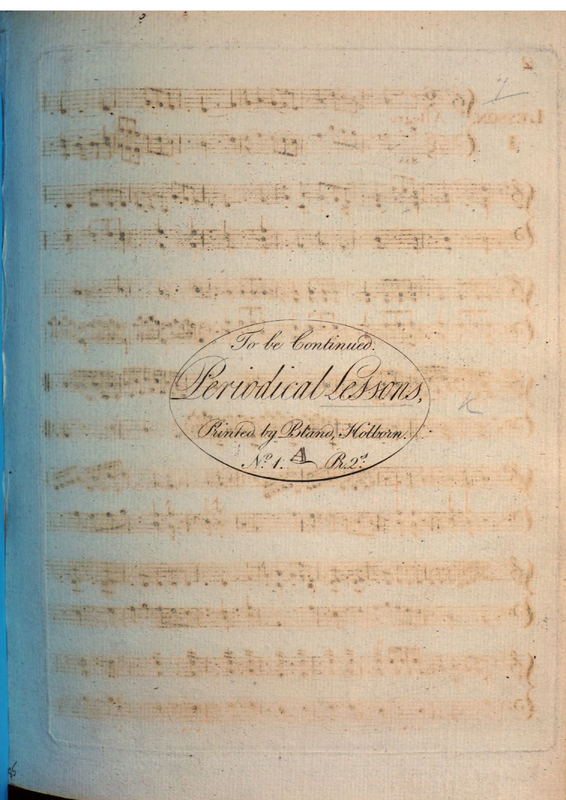 To be Continued.
Periodical Lessons,
Printed by Bland, Holborn.
No. 1. A Pr. 2s.